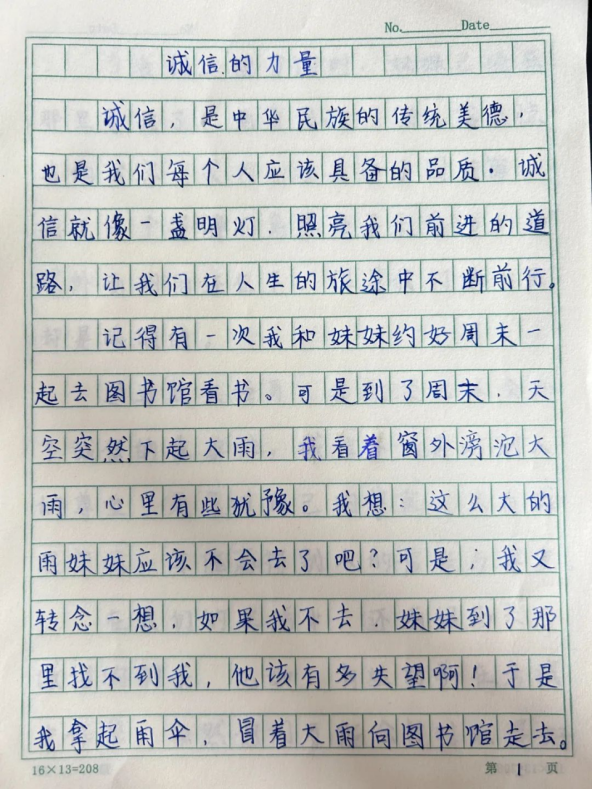 No. Date
诚信的力量
诚信，是中华民族的传统美德，
也是我们每个人应该具备的品质.诚
信就像一盏明灯.照亮我们前进的道
路，让我们在人生的旅途中不断前行。
记得有一次我和妹妹约好周末一
起去图书馆看书。可是到了周末.天
空突然下起大雨，我看着窗外滂沱大
雨，心里有些犹豫。我想：这么大的
雨妹妹应该不会去了吧？可是；我又
转念一想，如果我不去.妹妹到了那
里找不到我，他该有多失望啊！于是
我拿起雨伞，冒着大雨向图书馆走去。
16×13=208 第 1 页